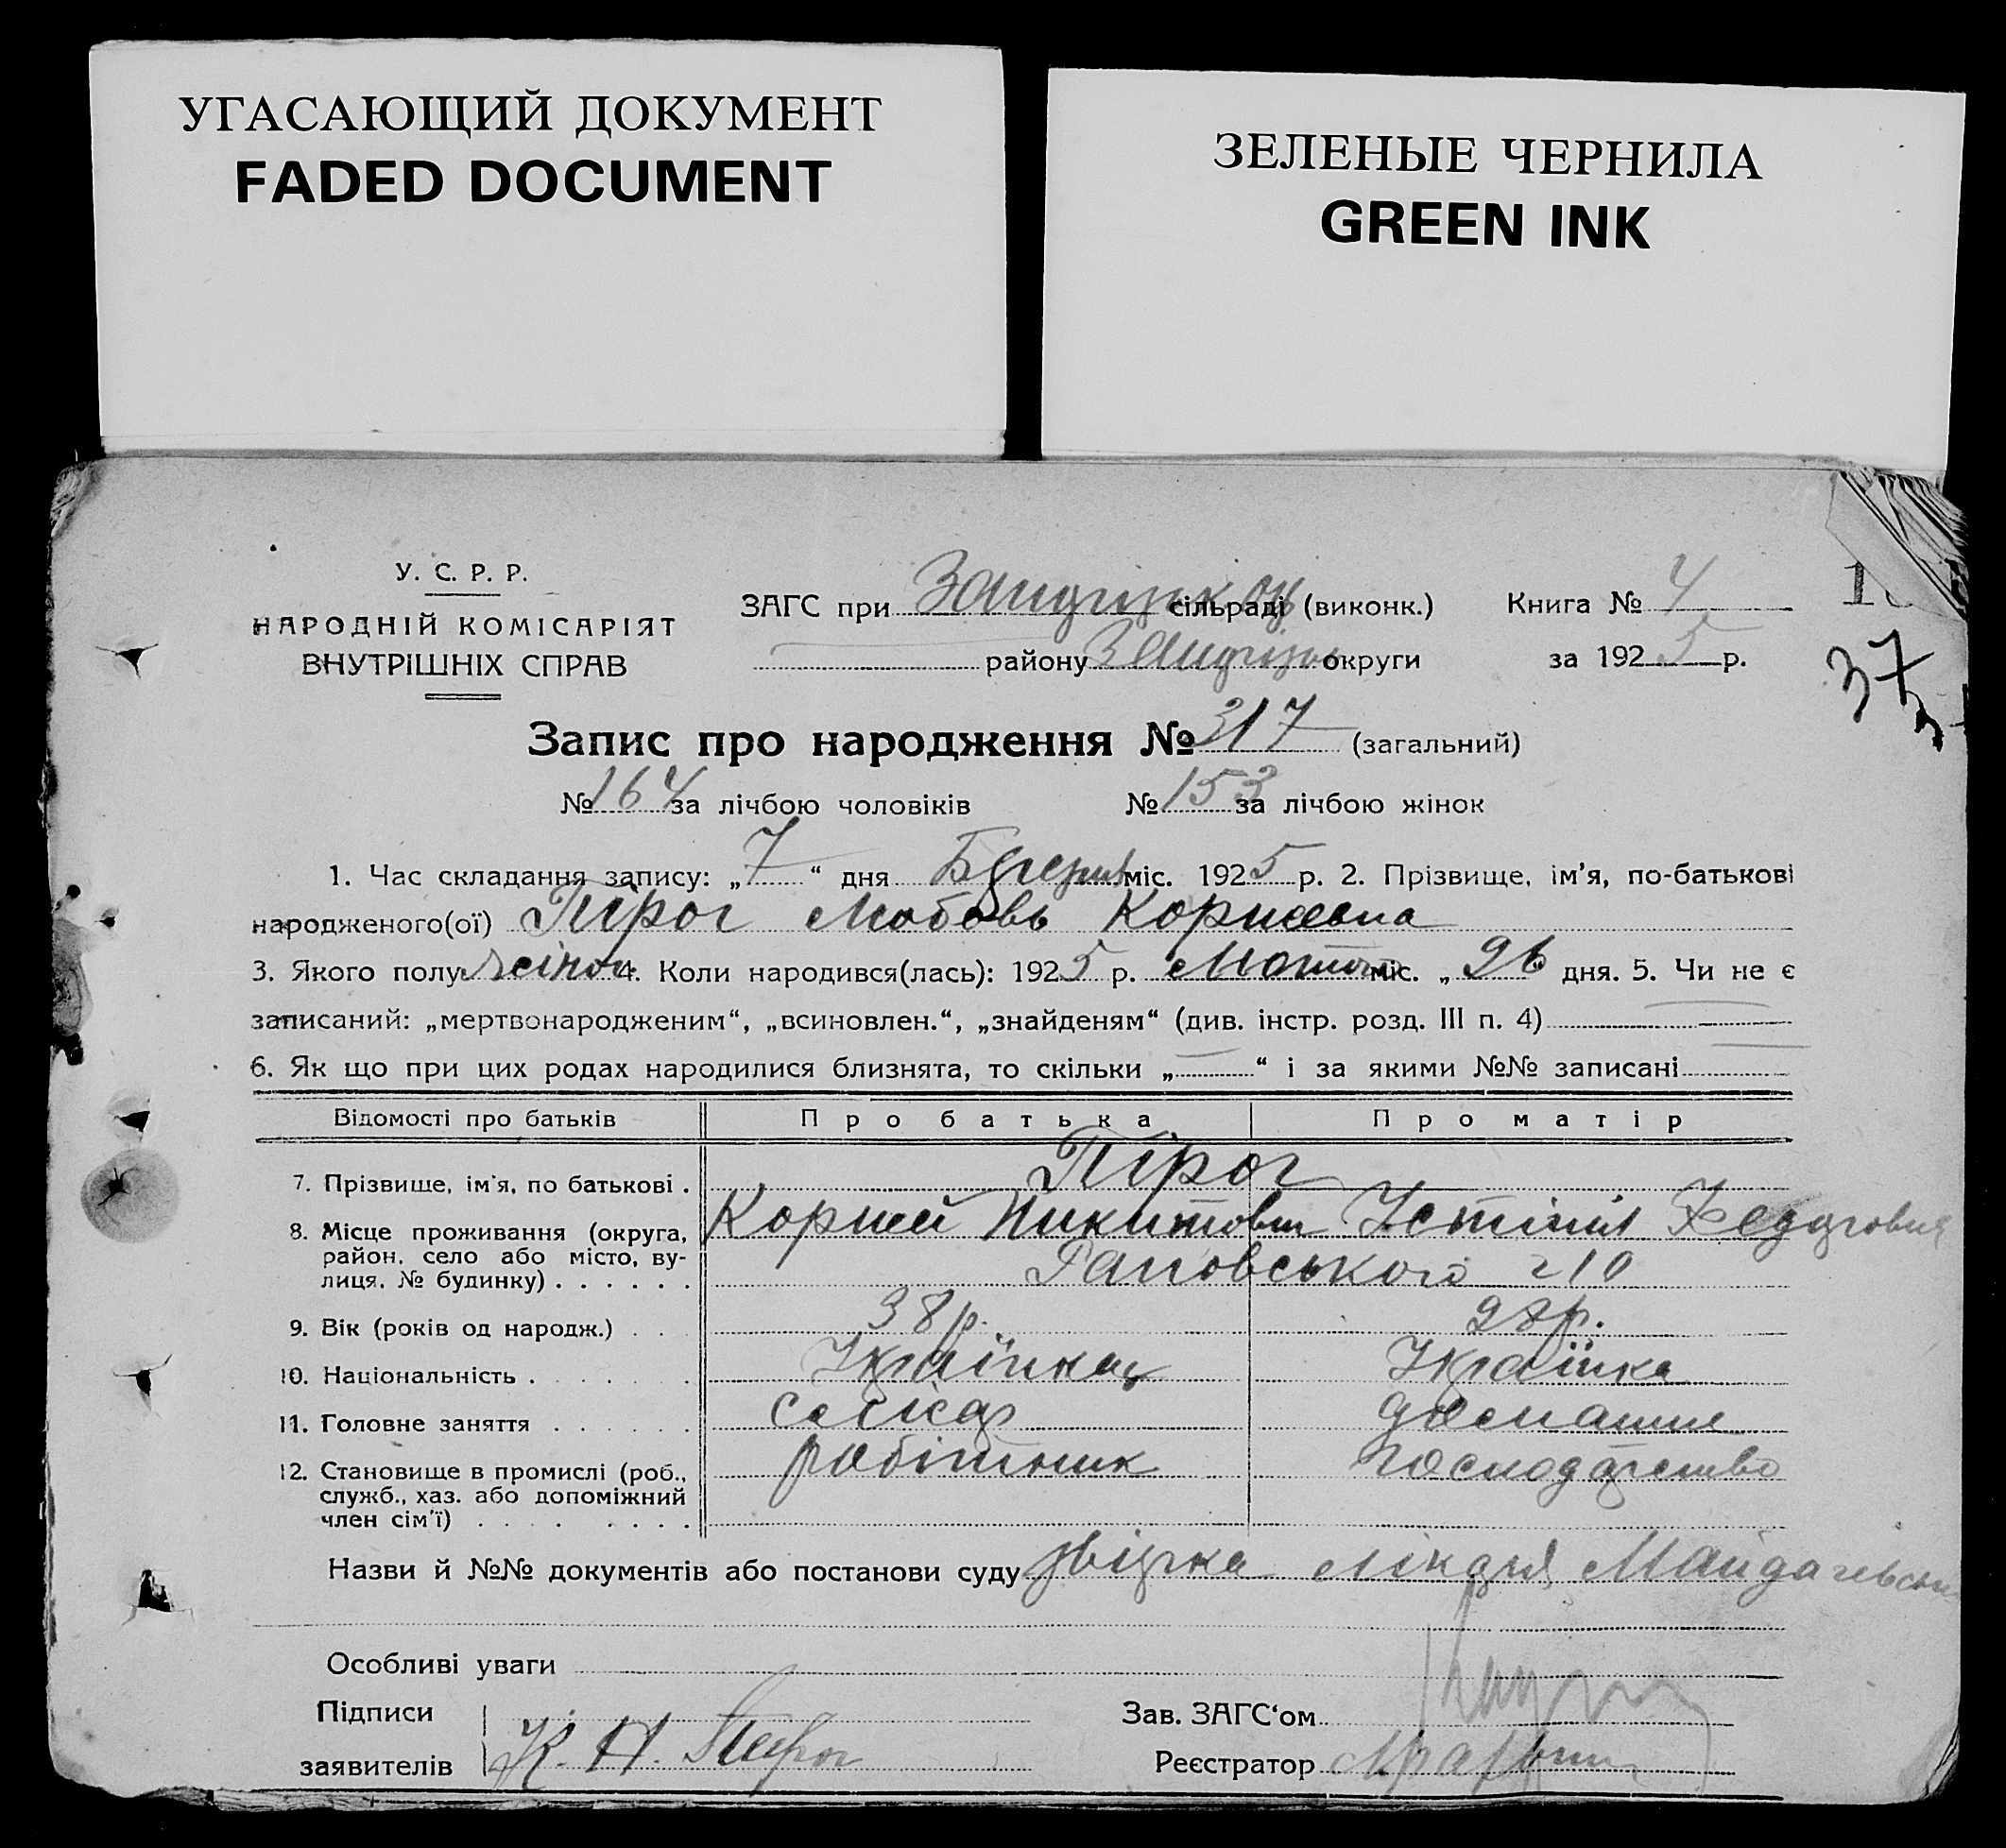 УГАСАЮЩИЙ ДОКУМЕНТ
FADED DOCUMENT
ЗЕЛЕНЫЕ ЧЕРНИЛА
GREEN INK
У. С. Р. Р.
НАРОДНІЙ КОМІСАРІЯТ
ВНУТРІШНІХ СПРАВ
ЗАГС при сільраді (виконк.)
району округи
Книга № 4
за 1925 р.
37
Запис про народження № 317 (загальний)
№ 164 за лічбою чоловіків № 153 за лічбою жінок
1. Час складання запису: „7“ дня Березня міс. 1925 р. 2. Прізвище, ім'я, по-батькові
народженого(ої) Пірог Любовь Корнеевна
3. Якого полу жіноч. 4. Коли народився(лась): 1925 р. Лютого міс. „26 дня. 5. Чи не є
записаний: „мертвонародженим“, „всиновлен.“, „знайденям“ (див. інстр. розд. III п. 4)
6. Як що при цих родах народилися близнята, то скільки „—“ і за якими №№ записані
Відомості про батьків Про батька Про матір
7. Прізвище, ім'я, по батькові . Пірог
Корней Никитович Устінія Федоровна
8. Місце проживання (округа,
район, село або місто, ву-
лиця, № будинку) . . . . . . 210
9. Вік (років од народж.) . . 38 р. 28 р.
10. Національність . Українец Українка
11. Головне заняття . . . . . . слюсар домашнє
12. Становище в промислі (роб., робітник господарство
служб., хаз. або допоміжний
член сім'ї) . . . . . . . .
Назви й №№ документів або постанови суду звідка лікаря
Особливі уваги
Підписи
заявителів К. Н. Пирог
Зав. ЗАГС'ом
Реєстратор